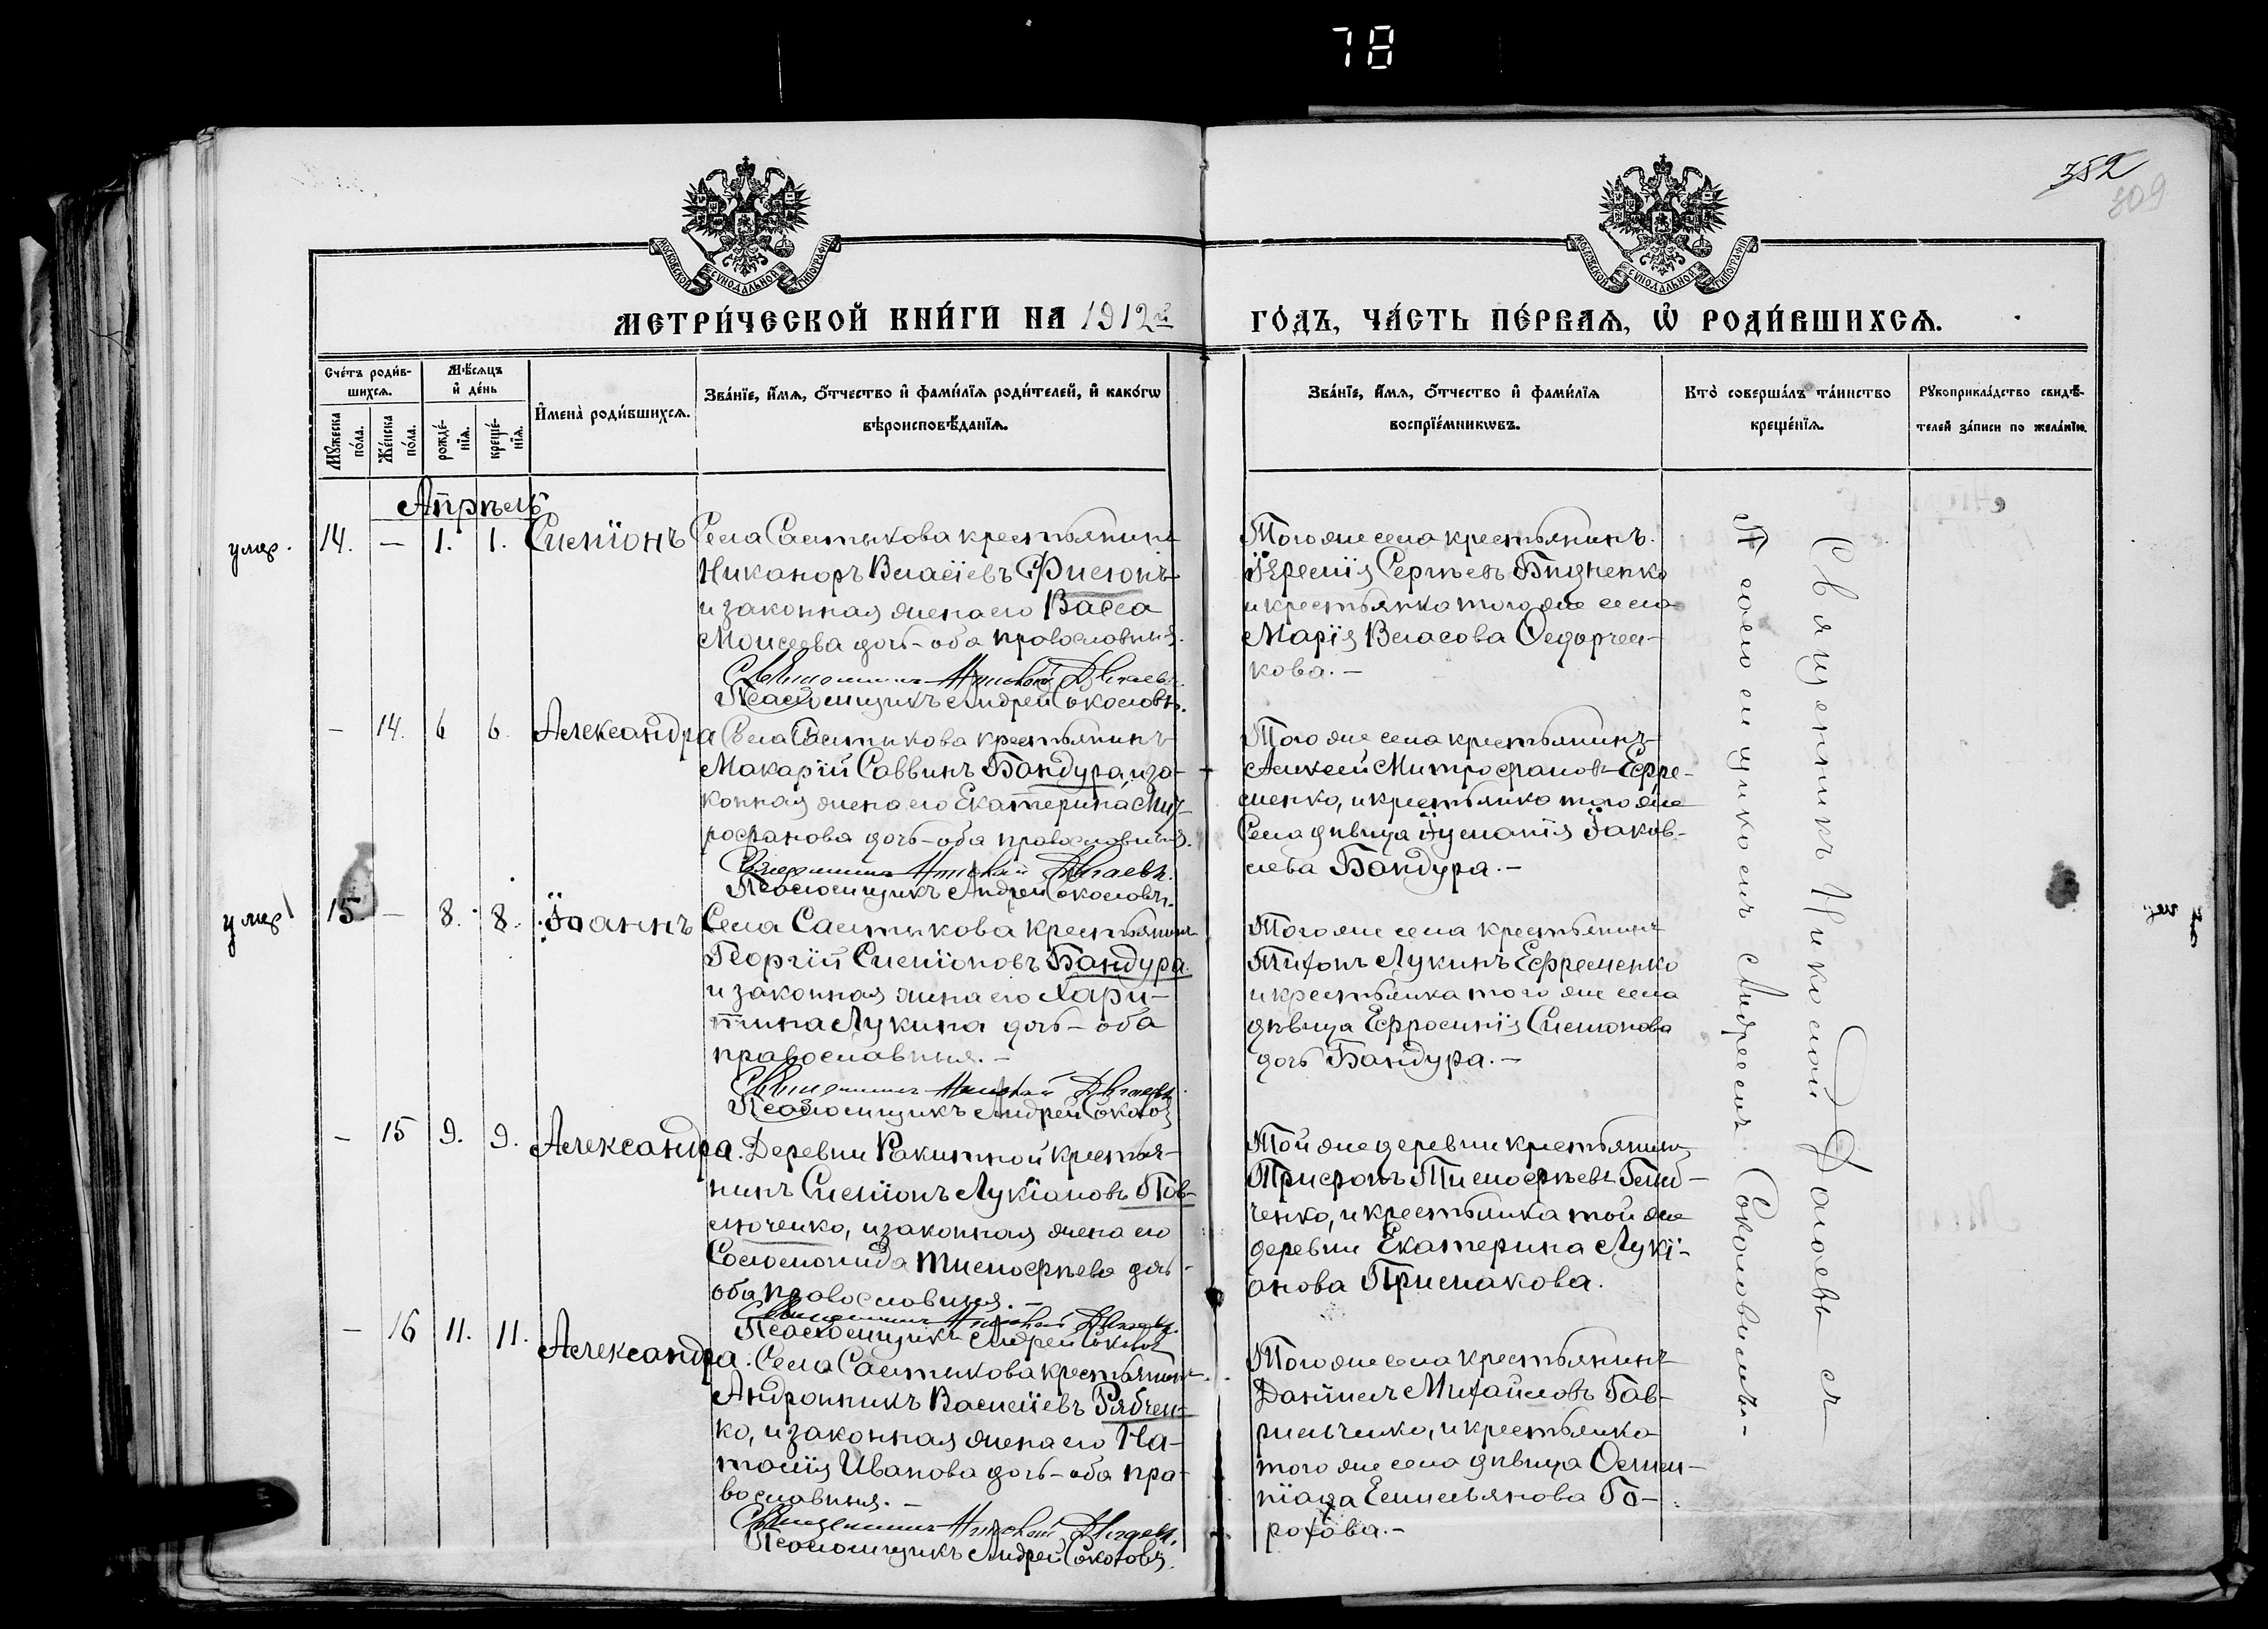 78
352
309
МОСКОВСКОЙ СѴНОДАЛЬНОЙ ТИПОГРАФІИ
МОСКОВСКОЙ СѴНОДАЛЬНОЙ ТИПОГРАФІИ
МЕТРИ́ЧЕСКОЙ КНИ́ГИ НА 1912й
ГО́ДЪ, ЧА́СТЬ ПЕ́РВАѦ, Ѡ҆ РОДИ́ВШИХСѦ.
Сче́тъ роди́в-
шихсѧ.
Мꙋ́жеска
по́ла.
Же́нска
по́ла.
Мѣ́сѧцъ
и҆ де́нь
рожде́-
нїѧ.
креще́-
нїѧ.
И҆мена̀ роди́вшихсѧ.
Зва́нїе, и҆́мѧ, ѻ҆́тчество и҆ фами́лїѧ роди́телей, и҆ како́гѡ
вѣроисповѣ́данїѧ.
Зва́нїе, и҆́мѧ, ѻ҆́тчество и҆ фами́лїѧ
воспрїе́мникѡвъ.
Кто̀ соверша́лъ та́инство
креще́нїѧ.
Рꙋкоприкла́дство свидѣ́-
телей за́писи по жела́нїю.
Апрѣль
умер.
14. — 1. 1. Симіонъ
Села Састыкова крестьянинъ
Никаноръ Власіевъ Фисюнъ
и законная жена его Васса
Моисеева дочь - оба православныя.
Священникъ Николай Долаевъ.
Псаломщикъ Андрей Соколовъ.
Тогоже села крестьянинъ
Іеремія Сергѣевъ
и крестьянка тогоже села
Марія Власова Федорчен-
кова. -
— 14. 6 6. Александра
Села Састыкова крестьянинъ
Макарій Саввинъ Бандура и за-
конная жена его Екатерина Мит-
рофанова дочь - оба православныя.
Священникъ Николай Долаевъ.
Псаломщикъ Андрей Соколовъ.
Того же села крестьянинъ
Алексей Митрофановъ Ефре-
менко, и крестьянка того же
села дѣвица Іуліанія Іаков-
лева Бандура. -
умер
15. — 8. 8. Іоаннъ
Села Састыкова крестьянинъ
Георгій Симіоновъ Бандура
и законная жена его Хари-
тина Лукина дочь - оба
православныя. -
Священникъ Николай Долаевъ
Псаломщикъ Андрей Соколовъ
Тогоже села крестьянинъ
Тихонъ Лукинъ Ефременко
и крестьянка того же села
дѣвица Ефросинія Симонова
дочь Бандура. -
— 15 9. 9. Александра.
Деревни Ракитной крестья-
нинъ Симіонъ Лукіановъ Пав-
люченко, и законная жена его
Соломонида Тимофѣева дочь -
оба православныя. -
Священникъ Николай Долаевъ.
Псаломщикъ Андрей Соколовъ
Той же деревни крестьянинъ
Трифонъ Тимофѣевъ
ченко, и крестьянка той же
деревни Екатерина Лукі-
анова Примакова.
— 16 11. 11. Александра.
Села Састыкова крестьянинъ
Андроникъ Василіевъ Рябчен-
ко, и законная жена его На-
талія Иванова дочь - оба пра-
вославныя. -
Священникъ Николай Долаевъ.
Псаломщикъ Андрей Соколовъ.
Тогоже села крестьянинъ
Даніилъ Михайловъ Гав-
рильченко, и крестьянка
того же села дѣвица Олим-
піада Емильянова Го-
рохова. -
Священникъ Николай Долаевъ съ
Псаломщикомъ Андреемъ Соколовымъ. -